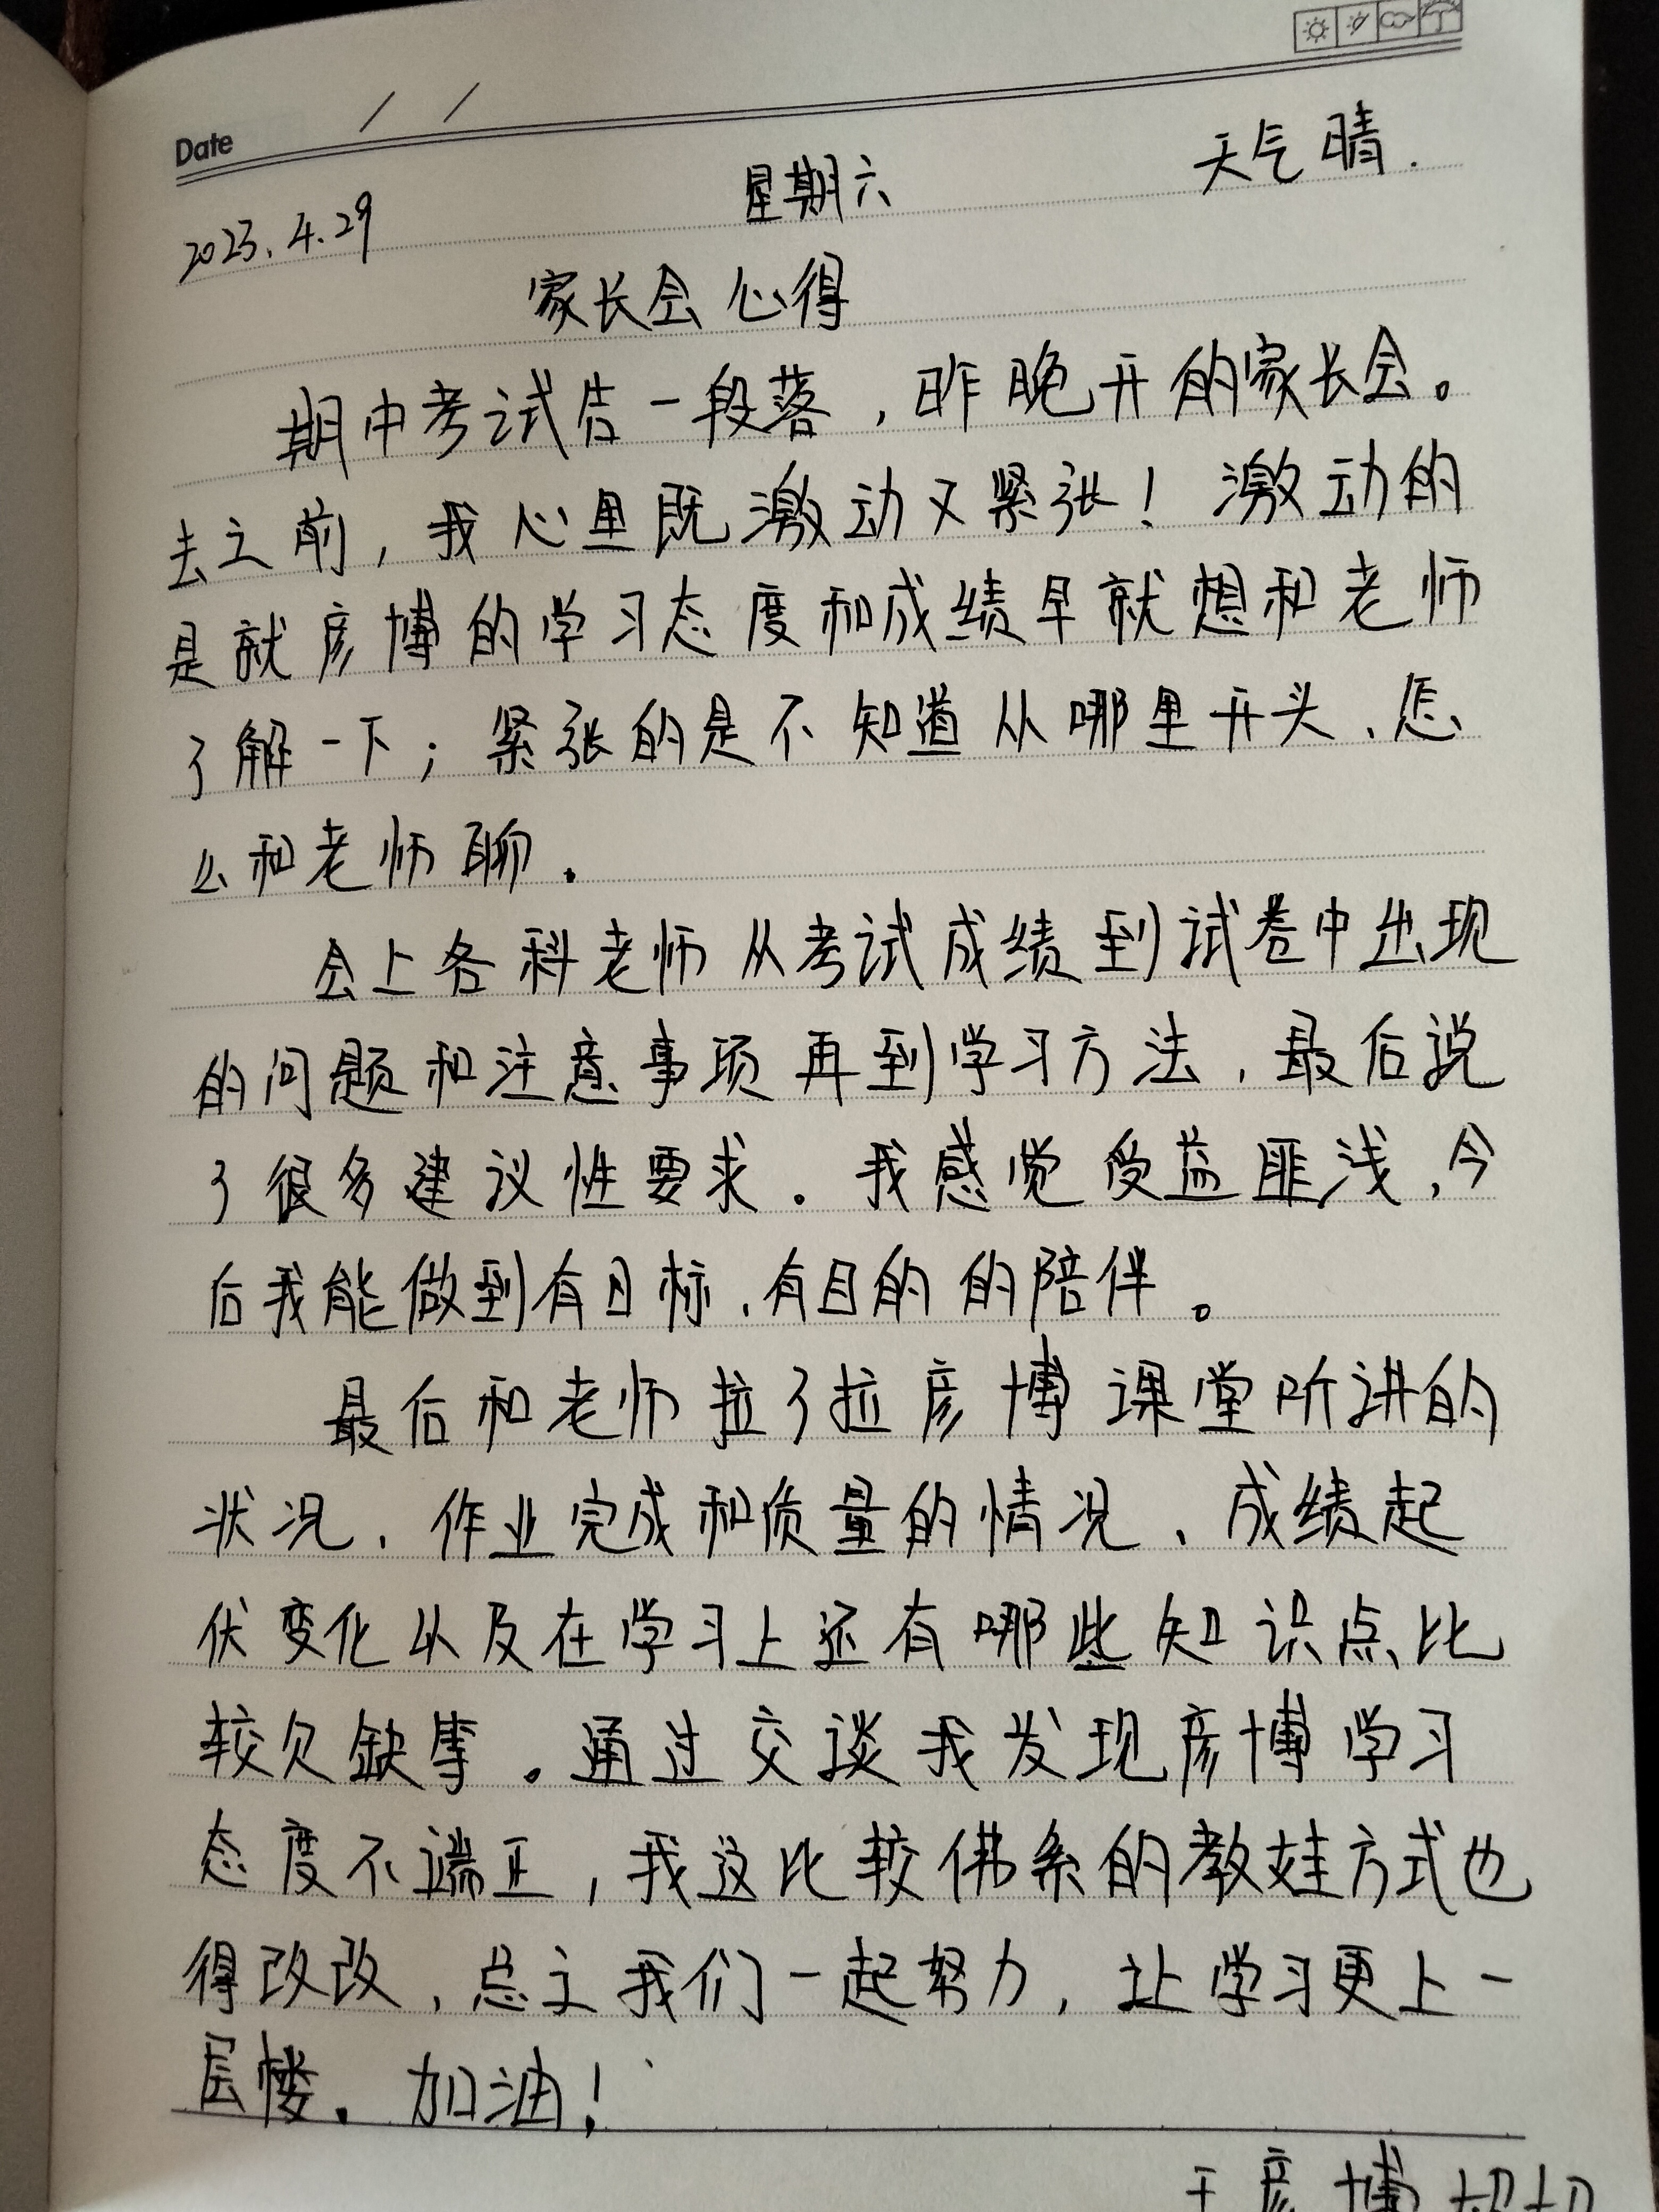 Date / /
2023.4.29 星期六 天气 晴.
家长会 心得
期中考试告一段落，昨晚开的家长会。
去之前，我心里既激动又紧张！激动的
是就彦博的学习态度和成绩早就想和老师
了解一下；紧张的是不知道从哪里开头、怎
么和老师聊.
会上各科老师从考试成绩到试卷中出现
的问题和注意事项再到学习方法，最后说
了很多建议性要求. 我感觉受益匪浅，今
后我能做到有目标、有目的的陪伴。
最后和老师拉了拉彦博课堂听讲的
状况、作业完成和质量的情况、成绩起
伏变化以及在学习上还有哪些知识点比
较欠缺等。通过交谈我发现彦博学习
态度不端正，我这比较佛系的教娃方式也
得改改，总之我们一起努力，让学习更上一
层楼. 加油！
彦博